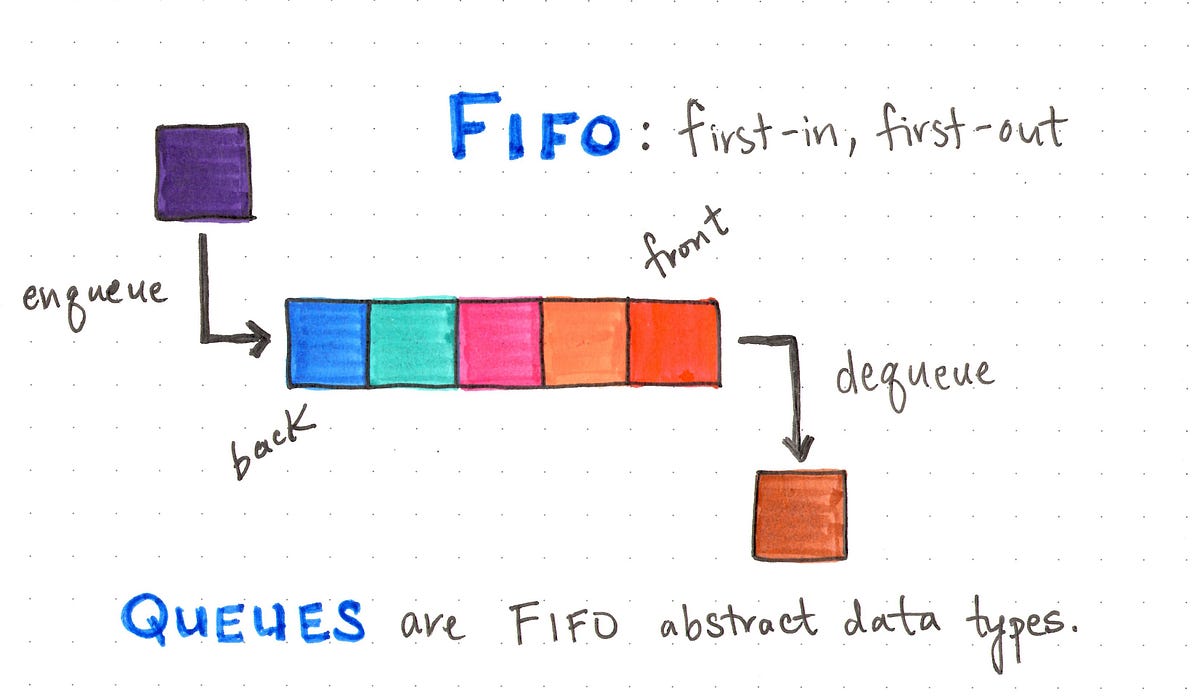 FIFO: first-in, first-out
front
enqueue
dequeue
back
QUEUES are FIFO abstract data types.